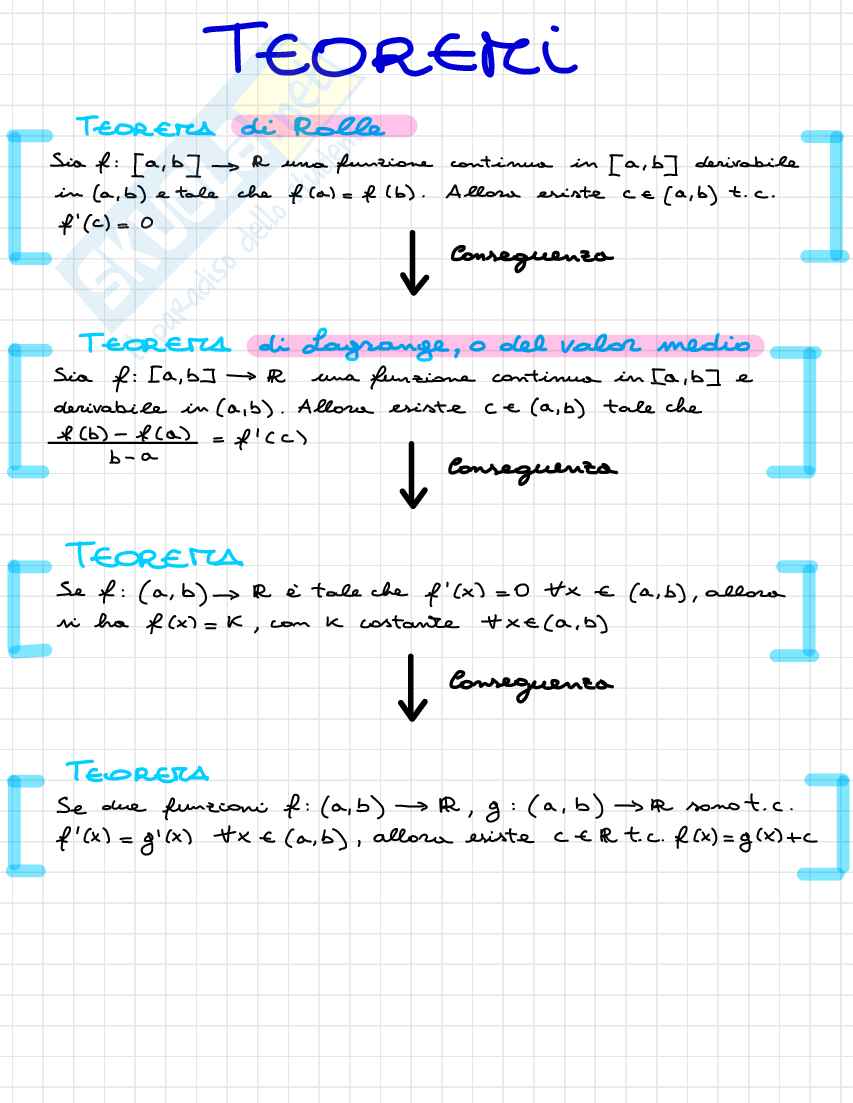 TEOREMI
TEOREMA di Rolle
Sia f: [a,b] → ℝ una funzione continua in [a,b] derivabile
in (a,b) e tale che f(a) = f(b). Allora esiste c ∈ (a,b) t.c.
f'(c) = 0
Conseguenza
TEOREMA di Lagrange, o del valor medio
Sia f: [a,b] → ℝ una funzione continua in [a,b] e
derivabile in (a,b). Allora esiste c ∈ (a,b) tale che
f(b) - f(a) / b - a = f'(c)
Conseguenza
TEOREMA
Se f: (a,b) → ℝ è tale che f'(x) = 0 ∀x ∈ (a,b), allora
si ha f(x) = K, con K costante ∀x ∈ (a,b)
Conseguenza
TEOREMA
Se due funzioni f: (a,b) → ℝ, g: (a,b) → ℝ sono t.c.
f'(x) = g'(x) ∀x ∈ (a,b), allora esiste c ∈ ℝ t.c. f(x) = g(x) + c
SKUOLA.net
il paradiso dello studente